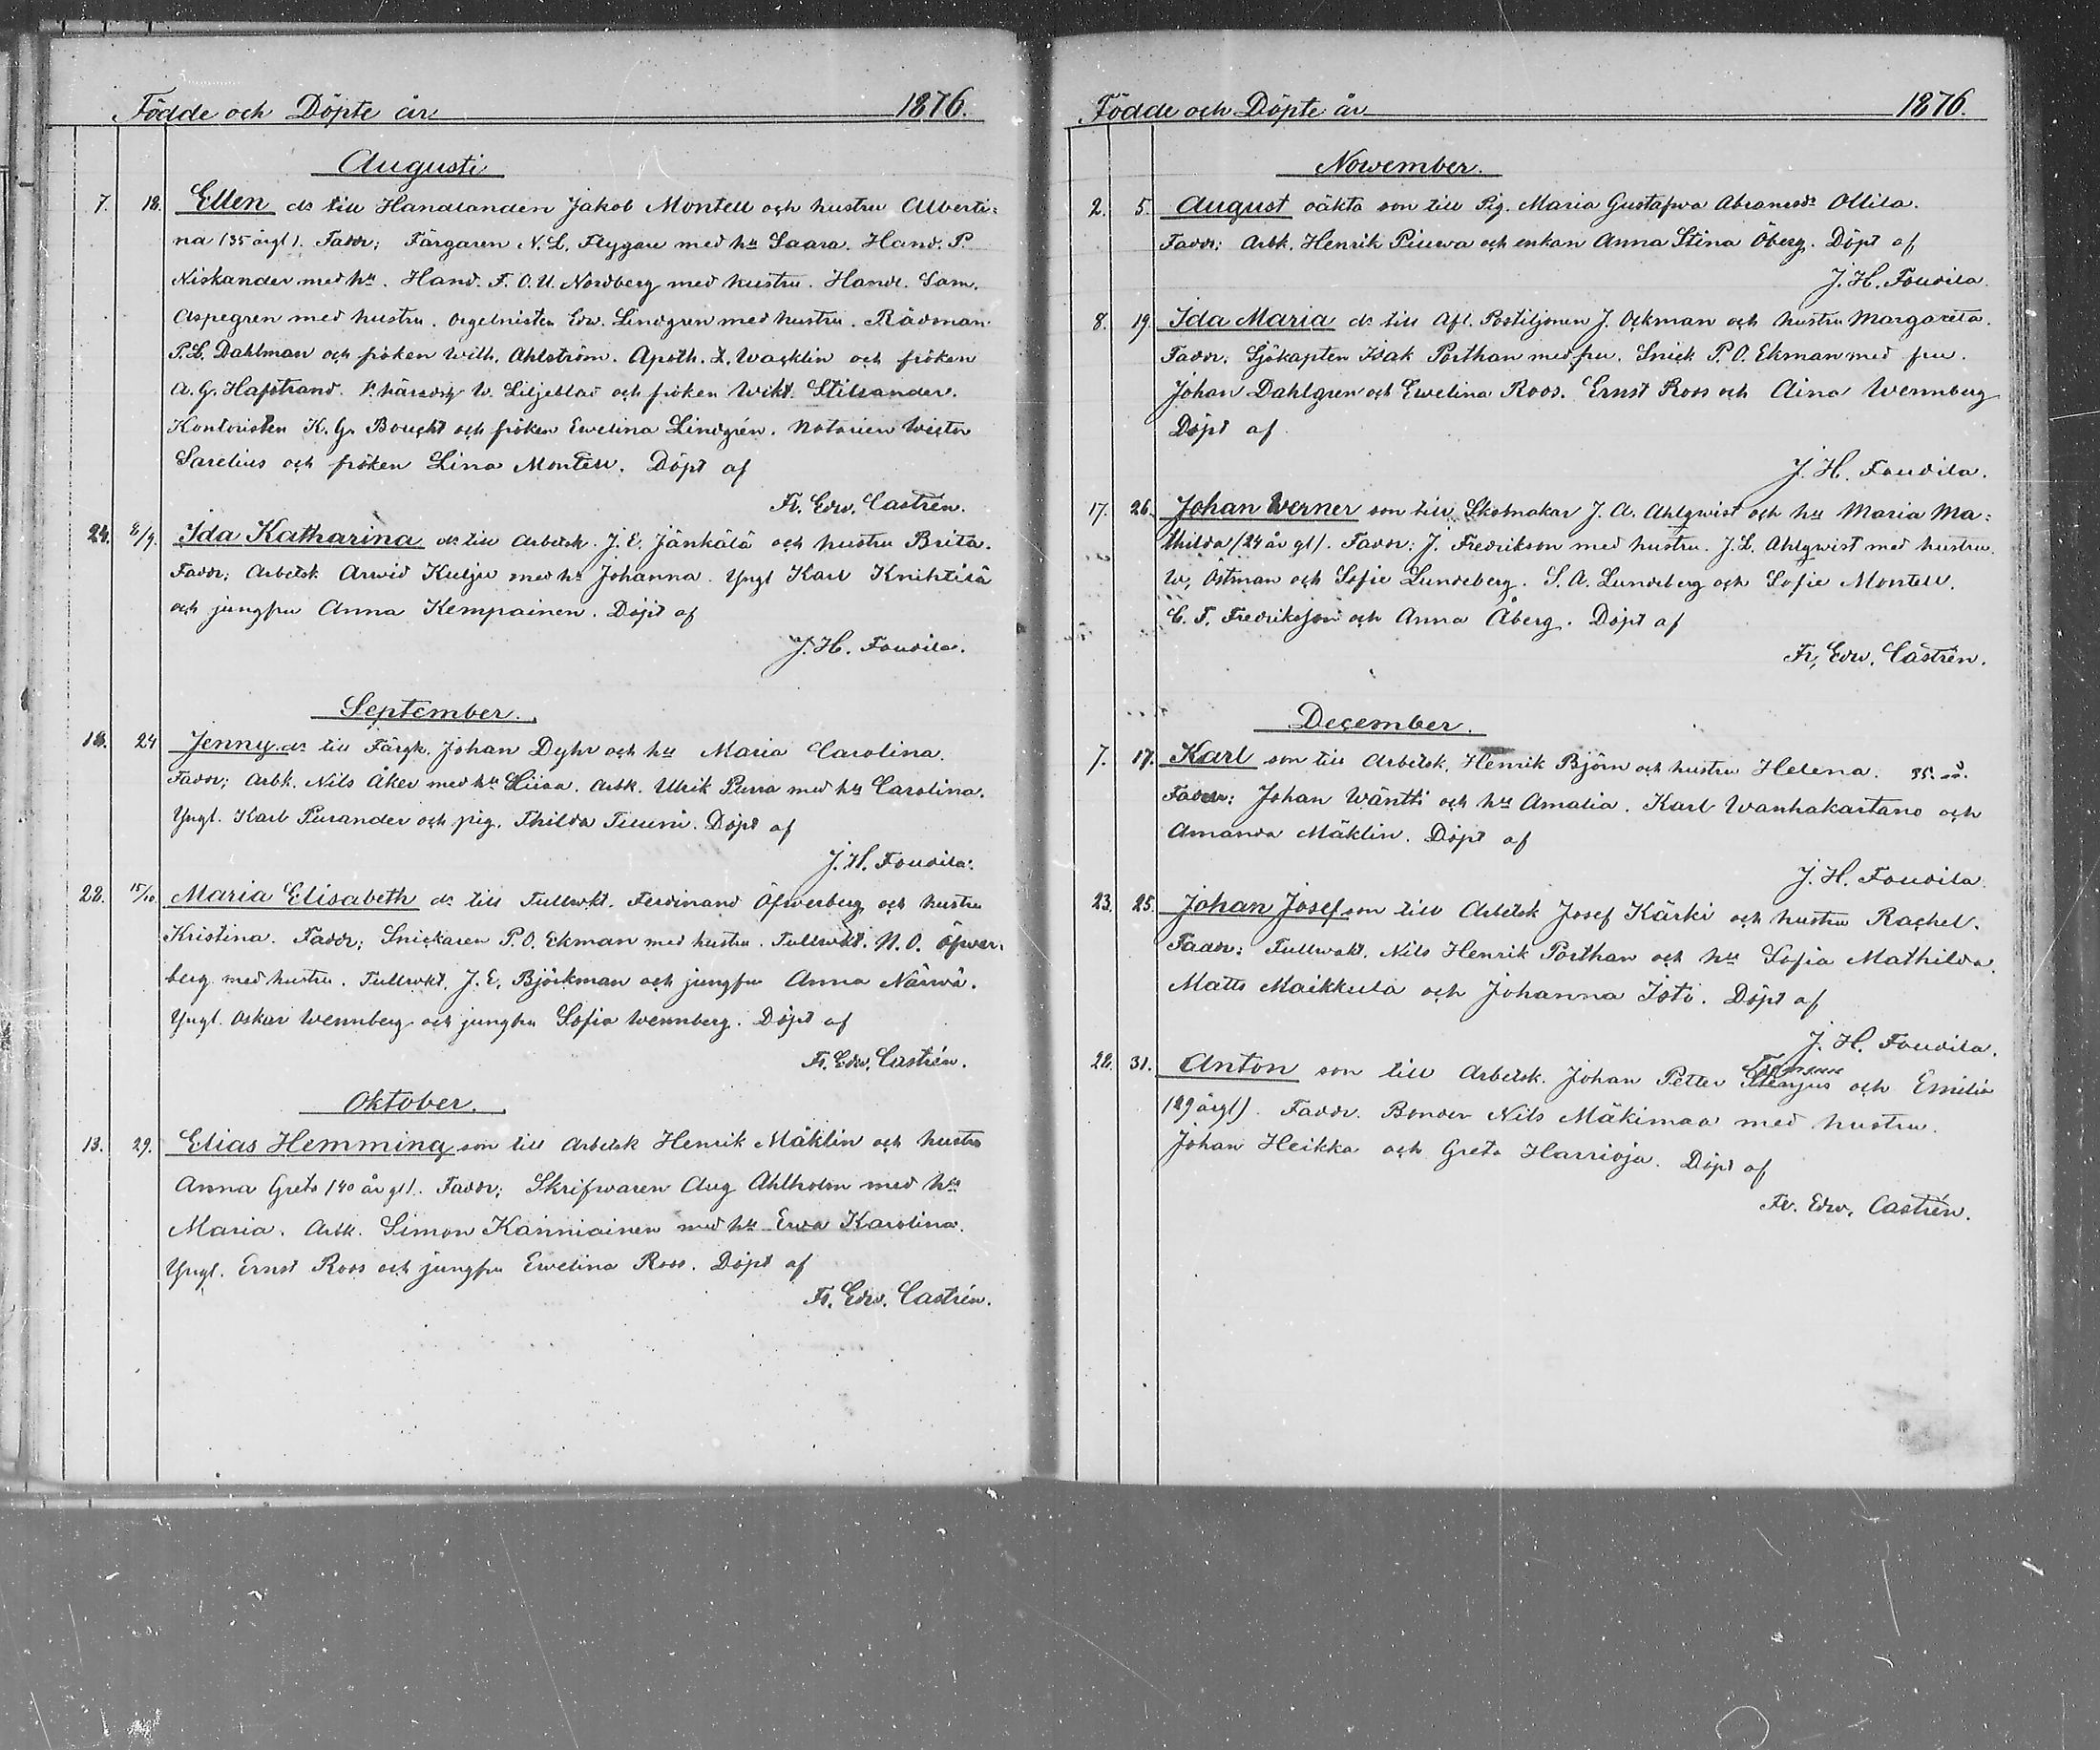 Födde och Döpte år 1876.
Augusti
7. 18. Ellen dr till Handlanden Jakob Montell och hustru Alberti=
na (35 årgl). Faddr; Färgaren N. L. Flygare med hu Saara. Hand. P.
Niskander med hu. Hand. F. O. U. Nordberg med hustru. Handl. Sam.
Aspegren med hustru. Orgelnisten Edw. Lindgren med hustru. Rådman
P. L. Dahlman och fröken Wilh. Ahlström. Apoth. Z. Wacklin och fröken
A. G. Hafstrand. V. häradsh W. Liljeblad och fröken Wikt. Stilsander.
Kontoristen K. G. Bought och fröken Ewelina Lindgrén. Notarien Wictor
Sarelius och fröken Lina Montell. Döpt af
Fr. Edw. Castrén.
24. 8/9. Ida Katharina dr till Arbetsk. J. E. Jänkälä och hustru Brita.
Faddr; Arbetsk Arwid Kuljer med hu Johanna. Yngl Karl Knihtilä
och jungfru Anna Kempainen. Döpt af
J. H. Foudila.
September.
18. 24 Jenny dr till Färgk. Johan Dyhr och hu Maria Carolina.
Faddr; Arbk. Nils Åker med hu Hiisa. Arbk. Ulrik Purra med hu Carolina.
Yngl. Karl Purander och pig. Thilda Tuuni. Döpt af
J. H. Foudila.
22. 15/10. Maria Elisabeth dr till Tullwkt. Ferdinand Öfwerberg och hustru
Kristina. Faddr; Snickaren P. O. Ekman med hustru. Tullwkt. N. O. Öfwer-
berg med hustru. Tullwkt. J. E. Björkman och jungfru Anna Närwä.
Yngl. Oskar Wennberg och jungfru Sofia Wennberg. Döpt af
Fr. Edw. Castrén.
Oktober.
13. 29. Elias Hemming son till Arbetsk Henrik Mäklin och hustru
Anna Greta (40 år gl). Faddr; Skrifwaren Aug Ahlholm med hu
Maria. Arbk. Simon Kanniainen med hu Ewa Karolina.
Yngl. Ernst Roos och jungfru Ewelina Roos. Döpt af
Fr. Edw. Castrén.
Födde och Döpte år 1876.
Nowember.
2. 5. August oäkta son till Pig. Maria Gustafwa Abramsdr Ollila.
Faddr: Arbk. Henrik Piuwa och enkan Anna Stina Öberg. Döpt af
J. H. Foudila.
8. 19. Ida Maria dr till Afl. Postiljonen J. Ockman och hustru Margareta.
Faddr. Sjökapten Isak Porthan med fru. Snick P. O. Ekman med fru.
Johan Dahlgren och Ewelina Roos. Ernst Roos och Aina Wennberg
Döpt af
J. H. Foudila.
17. 26. Johan Werner son till Skomakar J. A. Ahlqwist och hu Maria Ma=
thilda (24 år gl). Faddr: J. Fredrikson med hustru. J. L. Ahlqwist med hustru.
W. Östman och Sofie Lundeberg. S. A. Lundeberg och Sofie Montell.
C. F. Fredriksson och Anna Åberg. Döpt af
Fr. Edw. Castrén.
December.
7. 17. Karl son till Arbetsk. Henrik Björn och hustru Helena. 35. år.
Faddr: Johan Wäntti och hu Amalia. Karl Wanhakartano och
Amanda Mäklin. Döpt af
J. H. Foudila.
23. 25. Johan Josef son till Arbetsk Josef Kärki och hustru Rachel.
Faddr: Tullwakt. Nils Henrik Porthan och hu Sofia Mathilda.
Matts Maikkula och Johanna Isti. Döpt af
J. H. Foudila.
28. 31. Anton son till Arbetsk. Johan Petter och Emilia
(29 årgl). Faddr. Bonden Nils Mäkimaa med hustru.
Johan Heikka och Greta Harrioja. Döpt af
Fr. Edw. Castrén.